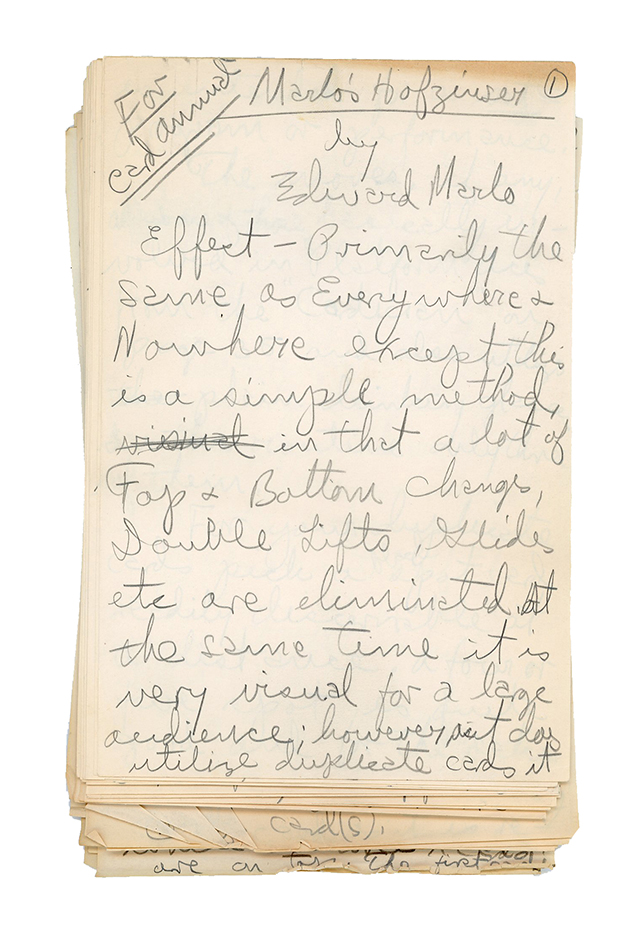 For
card annual
Marlo's Hofzinser ①
by
Edward Marlo
Effect – Primarily the
same as Everywhere &
Nowhere except this
is a simple method,
visiual in that a lot of
Top & Bottom changs,
Double Lifts, Glides
etc are eliminated. At
the same time it is
very visual for a large
audience; however, it does
utilize duplicate cards it
card(s).
are on top. The first